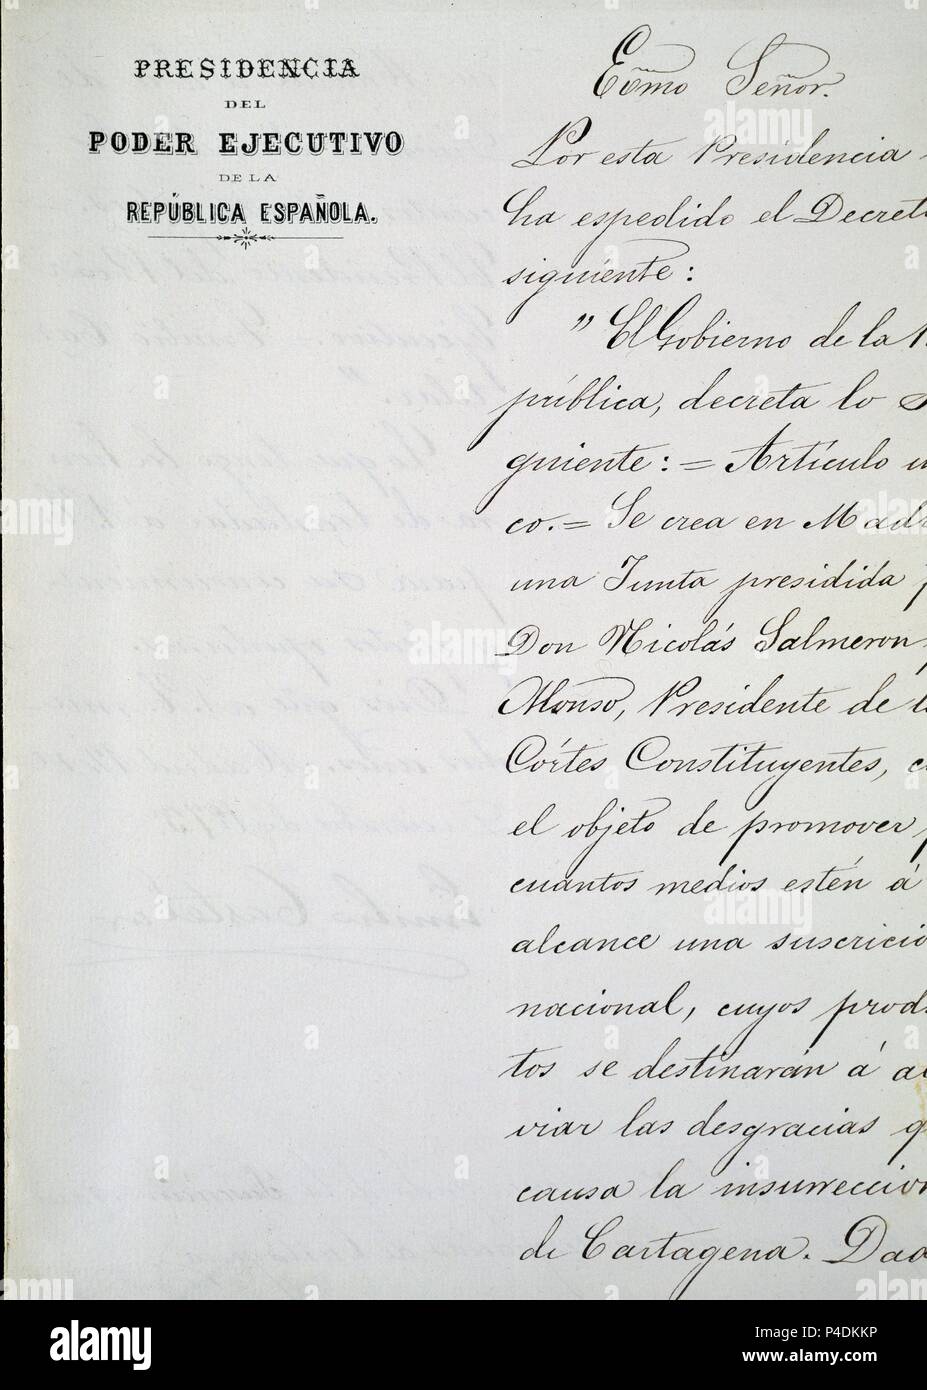 PRESIDENCIA
DEL
PODER EJECUTIVO
DE LA
REPÚBLICA ESPAÑOLA.
Exc̃mo Señor.
Por esta Presidencia
ha espedido el Decreto
siguiente:
" El Gobierno de la R
pública, decreta lo si
guiente: = Artículo u
co. = Se crea en Madr
una Junta presidida p
Don Nicolás Salmeron
Alonso, Presidente de l
Córtes Constituyentes, c
el objeto de promover p
cuantos medios estén á
alcance una suscricio
nacional, cuyos produ
tos se destinarán á al
viar las desgracias q
causa la insurreccion
de Cartagena. Dad
alamy
Image ID: P4DKKP
www.alamy.com